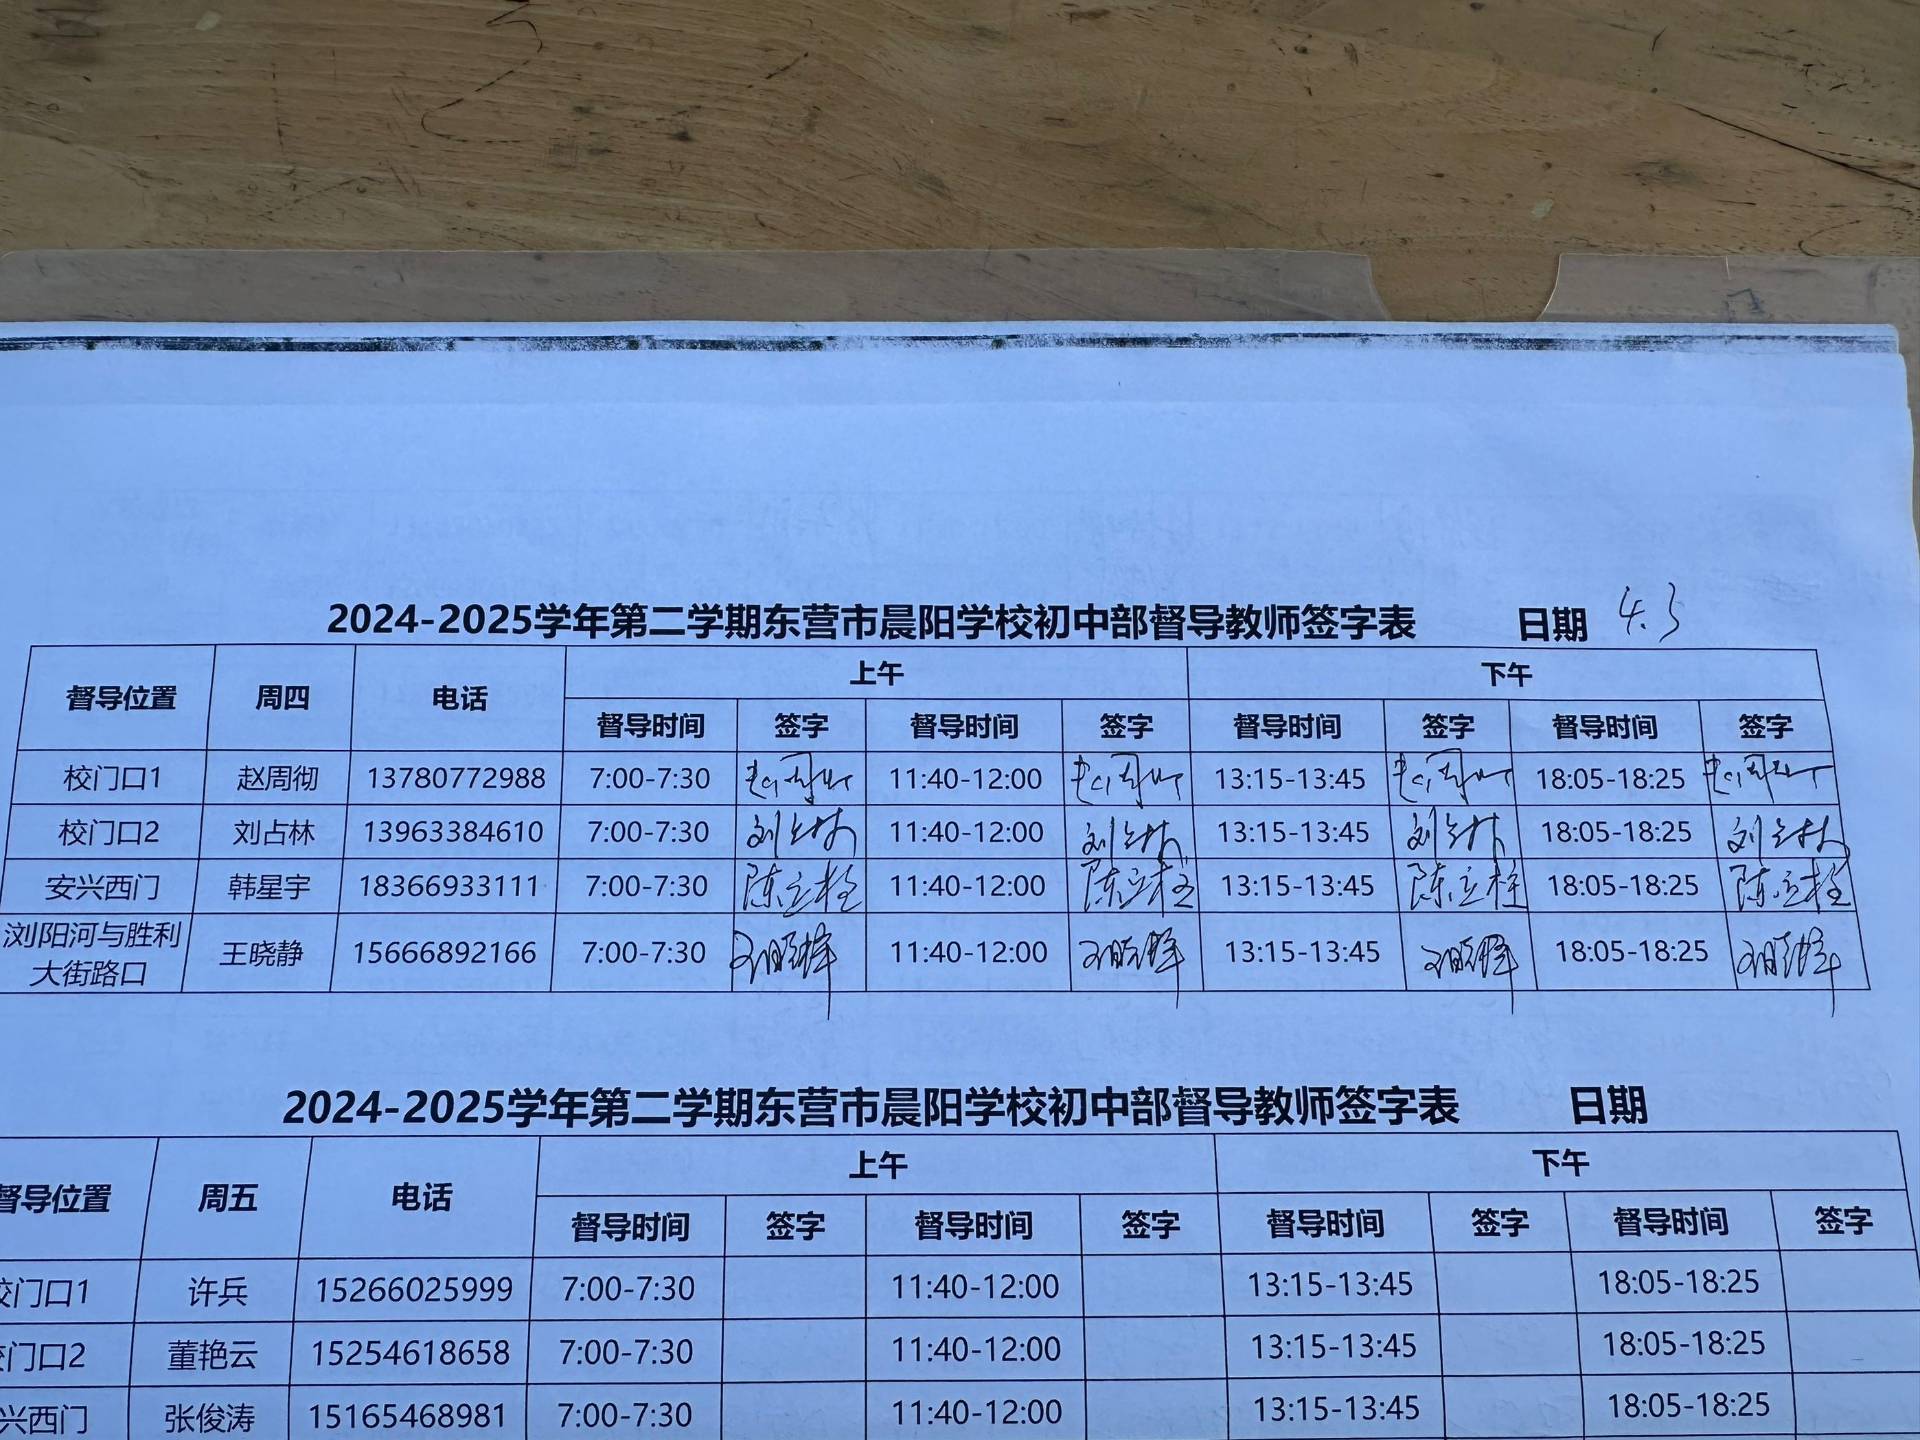 2024-2025学年第二学期东营市晨阳学校初中部督导教师签字表 日期 4.3
督导位置 周四 电话 上午 下午
督导时间 签字 督导时间 签字 督导时间 签字 督导时间 签字
校门口1 赵周彻 13780772988 7:00-7:30 11:40-12:00 13:15-13:45 18:05-18:25
校门口2 刘占林 13963384610 7:00-7:30 刘占林 11:40-12:00 刘占林 13:15-13:45 刘占林 18:05-18:25 刘占林
安兴西门 韩星宇 18366933111 7:00-7:30 陈立柱 11:40-12:00 陈立柱 13:15-13:45 陈立柱 18:05-18:25 陈立柱
浏阳河与胜利
大街路口 王晓静 15666892166 7:00-7:30 11:40-12:00 13:15-13:45 18:05-18:25
2024-2025学年第二学期东营市晨阳学校初中部督导教师签字表 日期
督导位置 周五 电话 上午 下午
督导时间 签字 督导时间 签字 督导时间 签字 督导时间 签字
校门口1 许兵 15266025999 7:00-7:30 11:40-12:00 13:15-13:45 18:05-18:25
校门口2 董艳云 15254618658 7:00-7:30 11:40-12:00 13:15-13:45 18:05-18:25
兴西门 张俊涛 15165468981 7:00-7:30 11:40-12:00 13:15-13:45 18:05-18:25